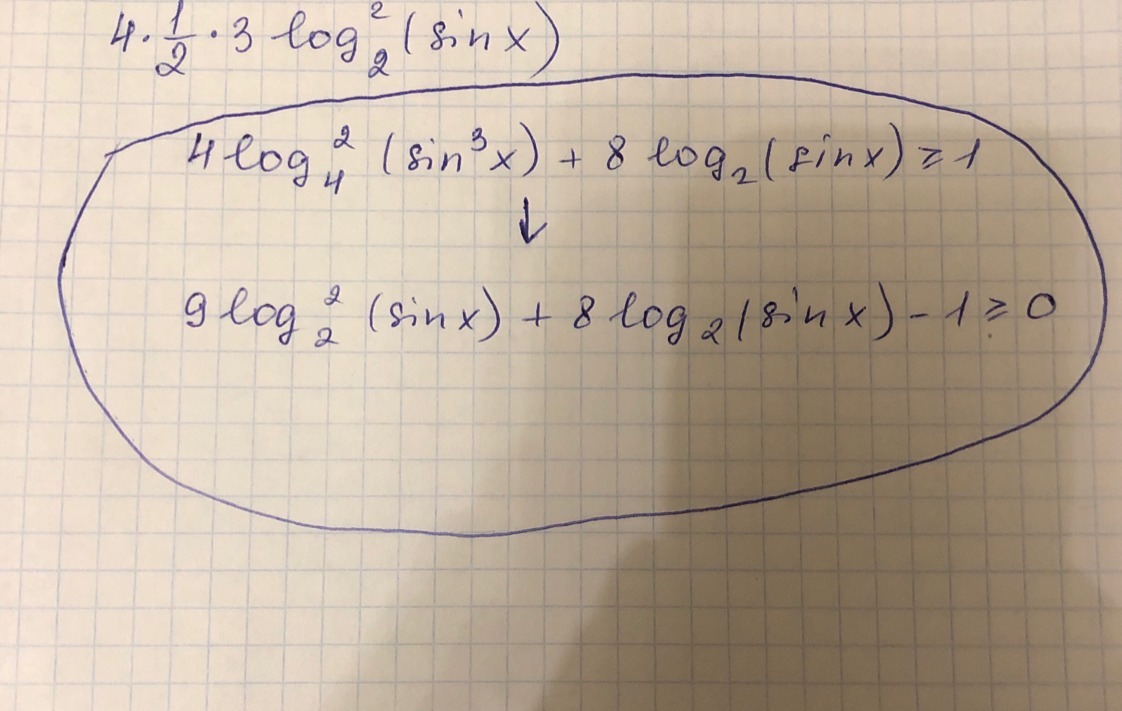 4 · 1/2 · 3 log₂² (sin x)
4 log₄² (sin³x) + 8 log₂ (sin x) ⩾ 1
↓
9 log₂² (sin x) + 8 log₂ (sin x) - 1 ⩾ 0